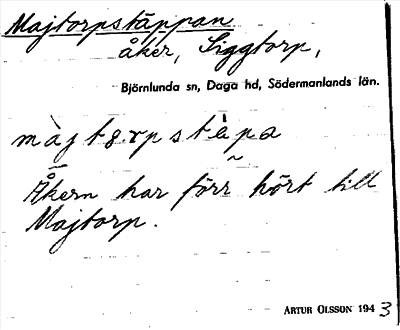 Majtorpstäppan
åker, Siggtorp,
Björnlunda sn, Daga hd, Södermanlands län.
màjtorpstɛ̀pa
Åkern har förr hört till
Majtorp.
ARTUR OLSSON 1943